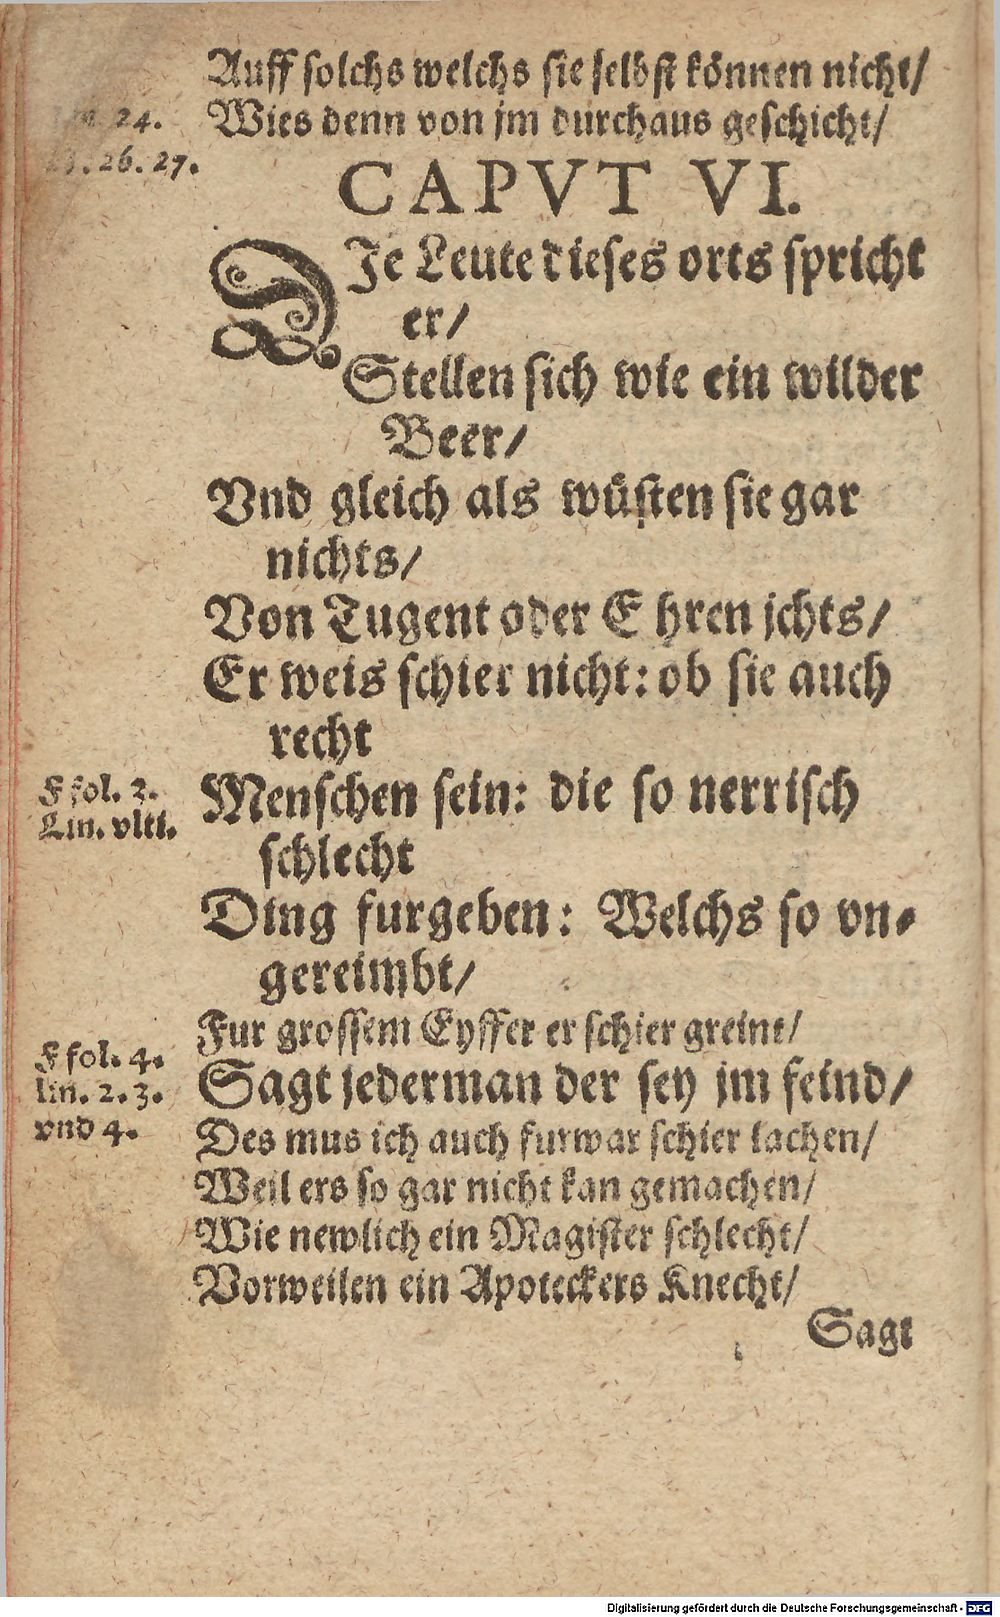 Auff solchs welchs sie selbst können nicht/
24.
Wies denn von jm durchaus geschicht/
26. 27.
CAPVT VI.
DJe Leute dieses orts spricht
er/
Stellen sich wie ein wilder
Beer/
Vnd gleich als wüsten sie gar
nichts/
Von Tugent oder Ehren jchts/
Er weis schier nicht: ob sie auch
recht
F fol. 2.
Lin. vlti.
Menschen sein: die so nerrisch
schlecht
Ding furgeben: Welchs so vn-
gereimbt/
Fur grossem Eyffer er schier greint/
F fol. 4.
lin. 2. 3.
vnd 4.
Sagt jederman der sey jm feind/
Des mus ich auch furwar schier lachen/
Weil ers so gar nicht kan gemachen/
Wie newlich ein Magister schlecht/
Vorweilen ein Apoteckers Knecht/
Sagt
Digitalisierung gefördert durch die Deutsche Forschungsgemeinschaft - DFG